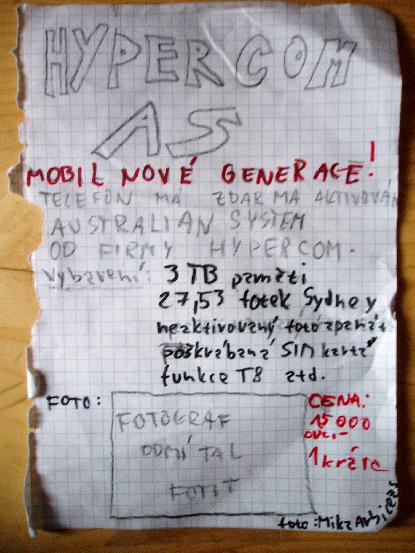 HYPERCOM
AS
MOBIL NOVÉ GENERACE!
TELEFON MÁ ZDARMA AKTIVOVÁN
AUSTRALIAN SYSTEM
OD FIRMY HYPERCOM.
Vybavení: 3 TB paměti
27,53 fotek Sydney
neaktivovaný fotoapanát
poškrábaná SIM karta
funkce T8 atd.
FOTO:
FOTOGRAF
ODMÍTAL
FOTIT
CENA:
15000
ovc,-
1 krát
foto: Mike